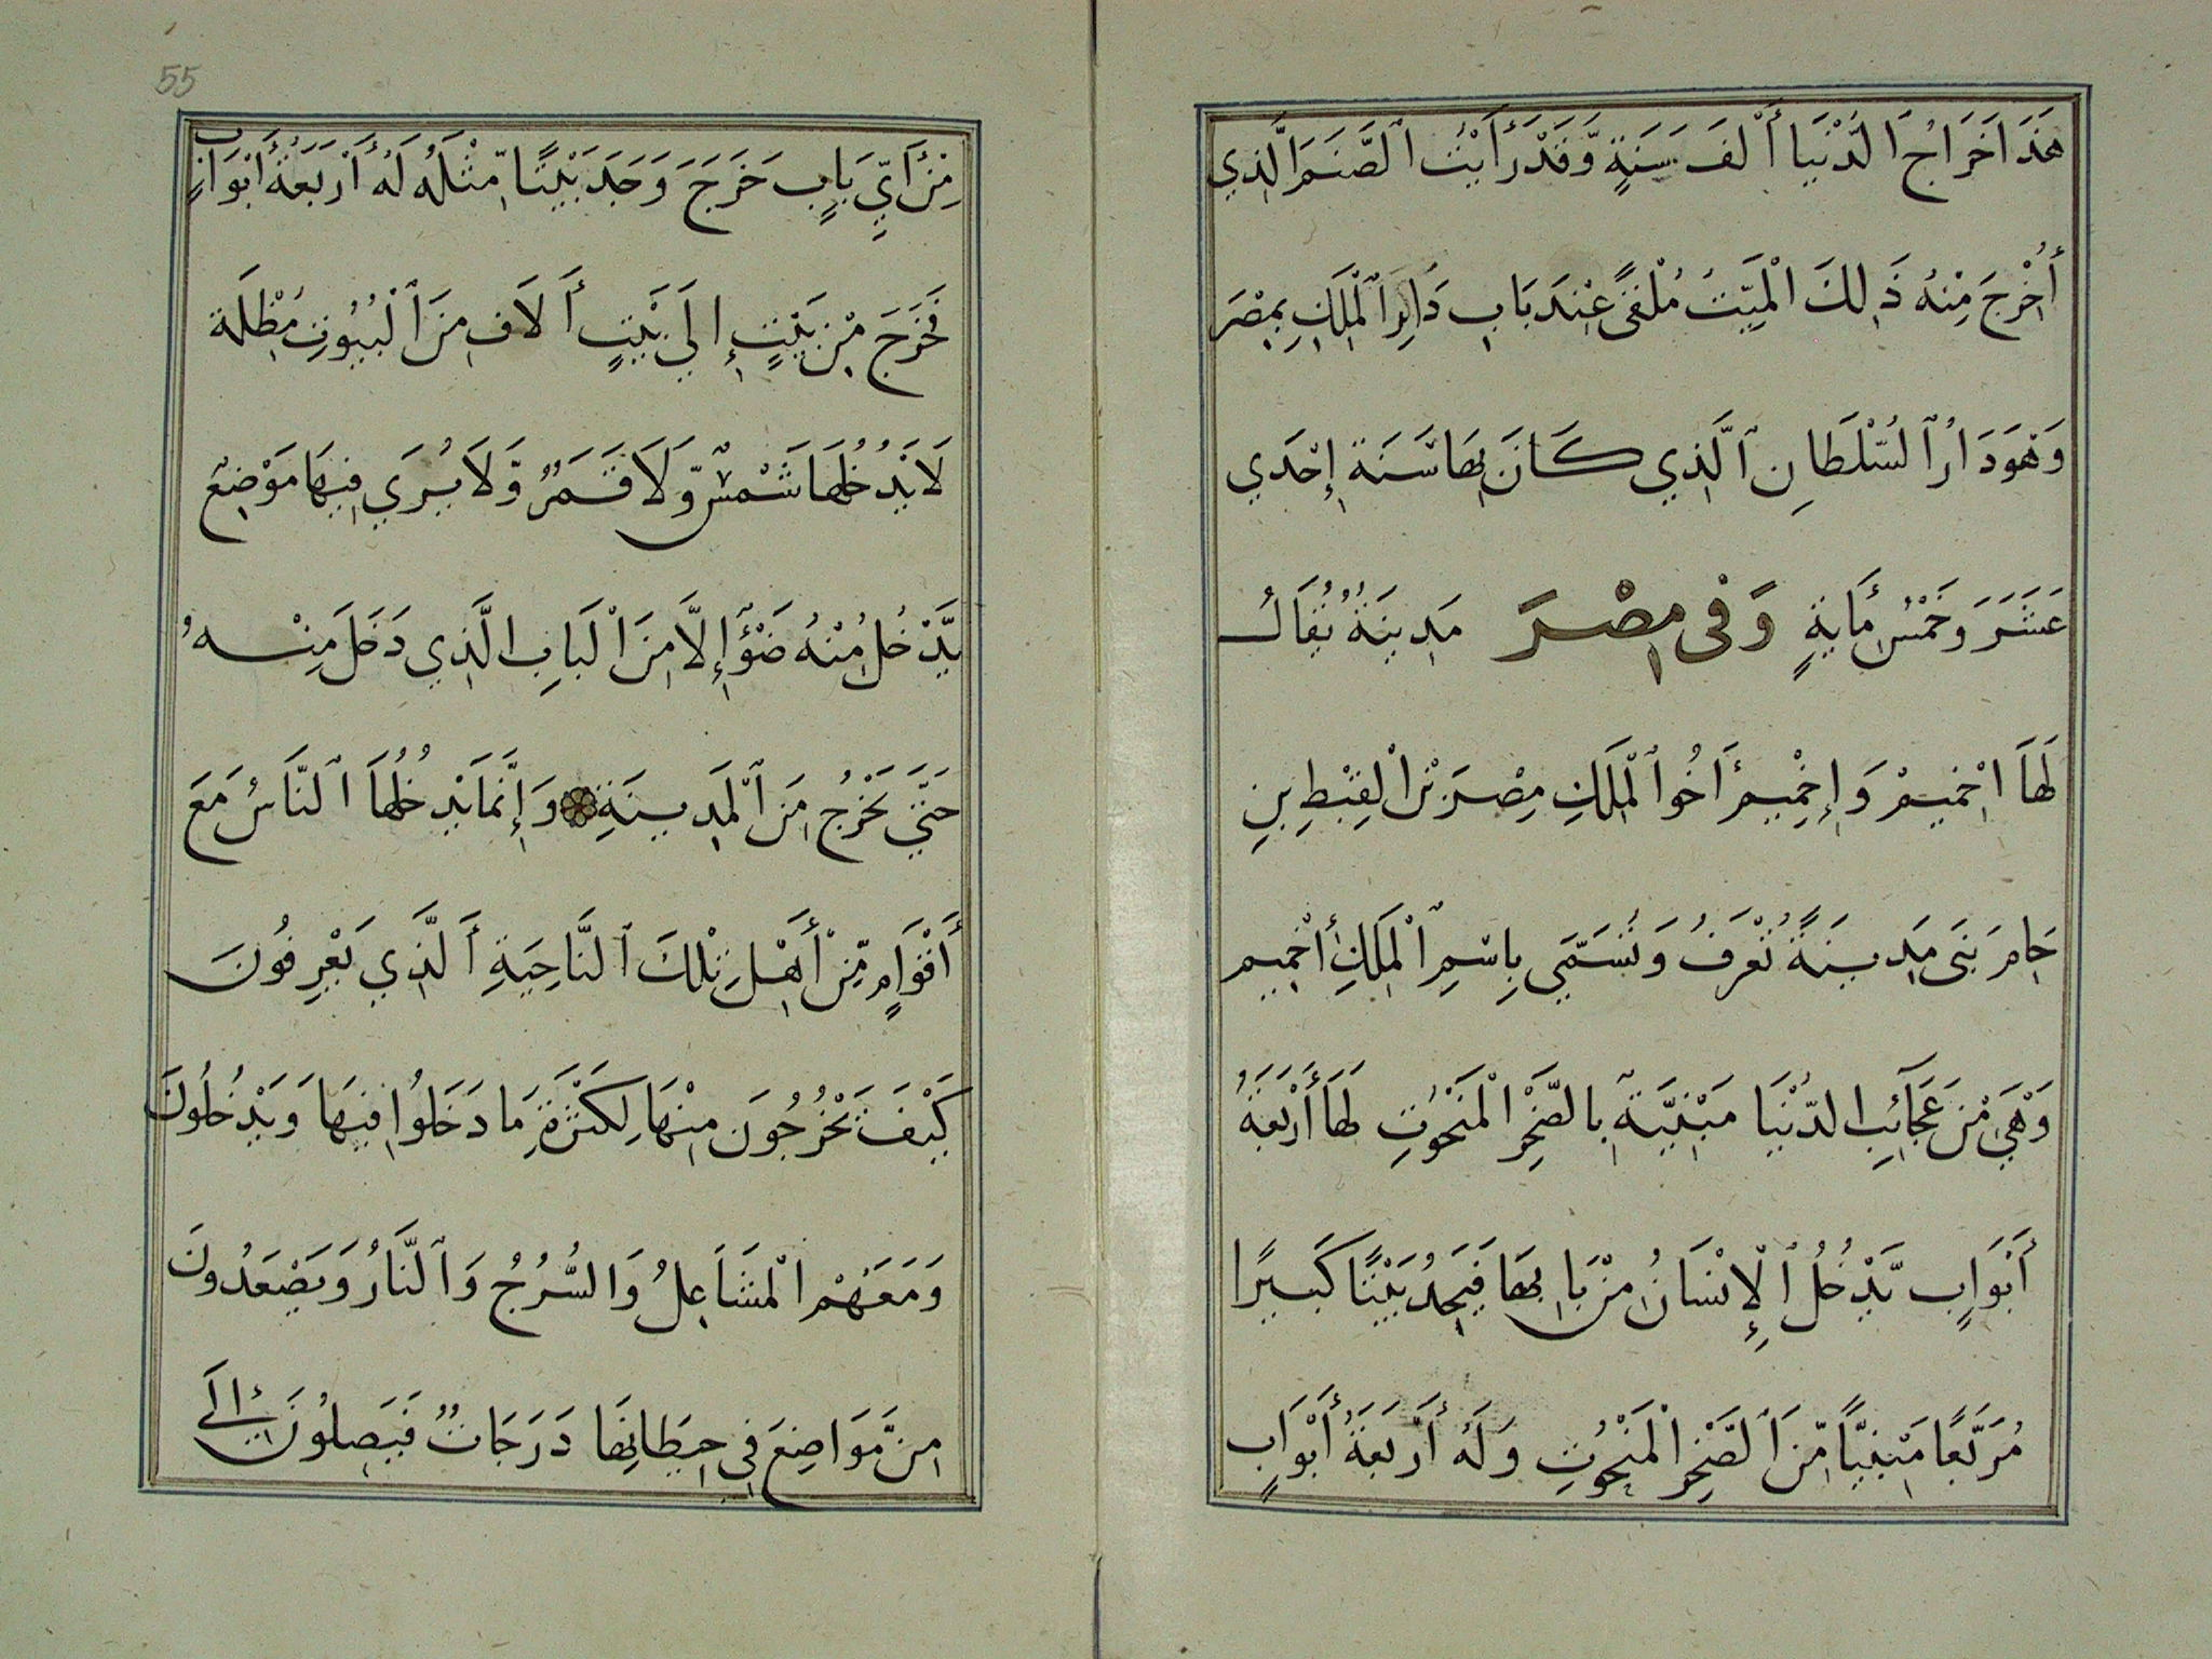 هَذَا خَرَاجُ الدُّنْيَا أَلْفَ سَنَةٍ وَّقَدْ رَأَيْتُ الصَّنَمَ الَّذِي
أُخْرِجَ مِنْهُ ذَلِكَ الْمَيِّتُ مُلْقًى عِنْدَ بَابِ دَارِ الْمَلِكِ بِمِصْرَ
وَهْوَ دَارُ السُّلْطَانِ الَّذِي كَانَ بِهَا سَنَةَ إِحْدَي
عَشَرَ وَخَمْسُ مِأَيةٍ وَفِى مِصْرَ مَدِينَةٌ يُقَالُ
لَهَا اخْمِيمْ وَإِخْمِيمُ أَخُو الْمَلِكِ مِصْرَ بْنِ الْقِبْطِ بْنِ
حَامِ بَنَى مَدِينَةً تُعْرَفُ وَتُسَمَّي بِاسْمِ الْمَلِكِ أَخْمِيم
وَهْيَ مِنْ عَجَآئِبِ الدُّنْيَا مَبْنِيَّةٌ بِالصَّخْرِ الْمَنْحُوتِ لَهَا أَرْبَعَةُ
أَبْوَابٍ يَّدْخُلُ الْإِنْسَانُ مِنْ بَابِهَا فَيَجِدُ بَيْتًا كَبِيرًا
مُرَبَّعًا مَبْنِيًّا مِّنَ الصَّخْرِ الْمَنْحُوتِ وَلَهُ أَرْبَعَةُ أَبْوَابٍ
55
مِنْ أَيِّ بَابٍ خَرَجَ وَجَدَ بَيْتًا مِّثْلَهُ لَهُ أَرْبَعَةُ أَبْوَابٍ
فَخَرَجَ مِنْ بَيْتٍ إِلَي بَيْتٍ أَلَافٍ مِنَ الْبُيُوتِ مُظْلِمَة
لَا يَدْخُلُهَا شَمْسٌ وَّلَا قَمَرٌ وَّلَا يُرَي فِيهَا مَوْضِعٌ
يَّدْخُلُ مِنْهُ ضَوْءٌ إِلَّا مِنَ الْبَابِ الَّذِي دَخَلَ مِنْهُ
حَتَّي يَخْرُجُ مِنَ الْمَدِينَةِ وَإِنَّمَا يَدْخُلُهَا النَّاسُ مَعَ
أَقْوَامٍ مِّنْ أَهْلِ تِلْكَ النَّاحِيَةِ أَلَّذِي يَعْرِفُونَ
كَيْفَ يَخْرُجُونَ مِنْهَا لِكَثْرَةِ مَا دَخَلُوا فِيهَا وَيَدْخُلُونَ
وَمَعَهُمْ الْمَشَاعِلُ وَالسُّرُجُ وَالنَّارُ وَيَصْعَدُونَ
مِنْ مَّوَاضِعَ فِي حِيطَانِهَا دَرَجَاتٌ فَيَصِلُونَ إِلَي